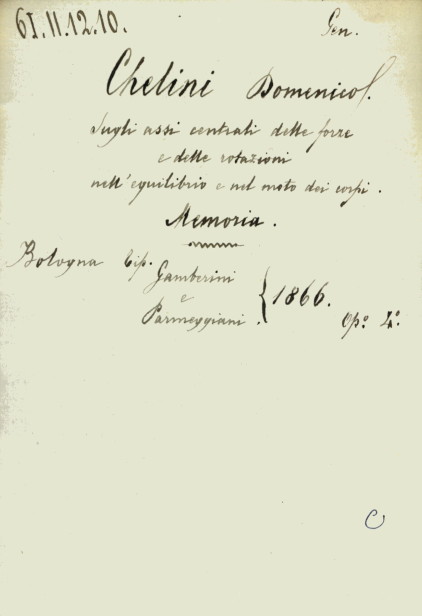 61.11.12.10.
Gen.
Chelini Domenico.
Sugli assi centrali delle forze
e delle rotazioni
nell'equilibrio e nel moto dei corpi.
Memoria.
Bologna Tip. Gamberini
e
Parmeggiani. } 1866.
Opº 4º.
C